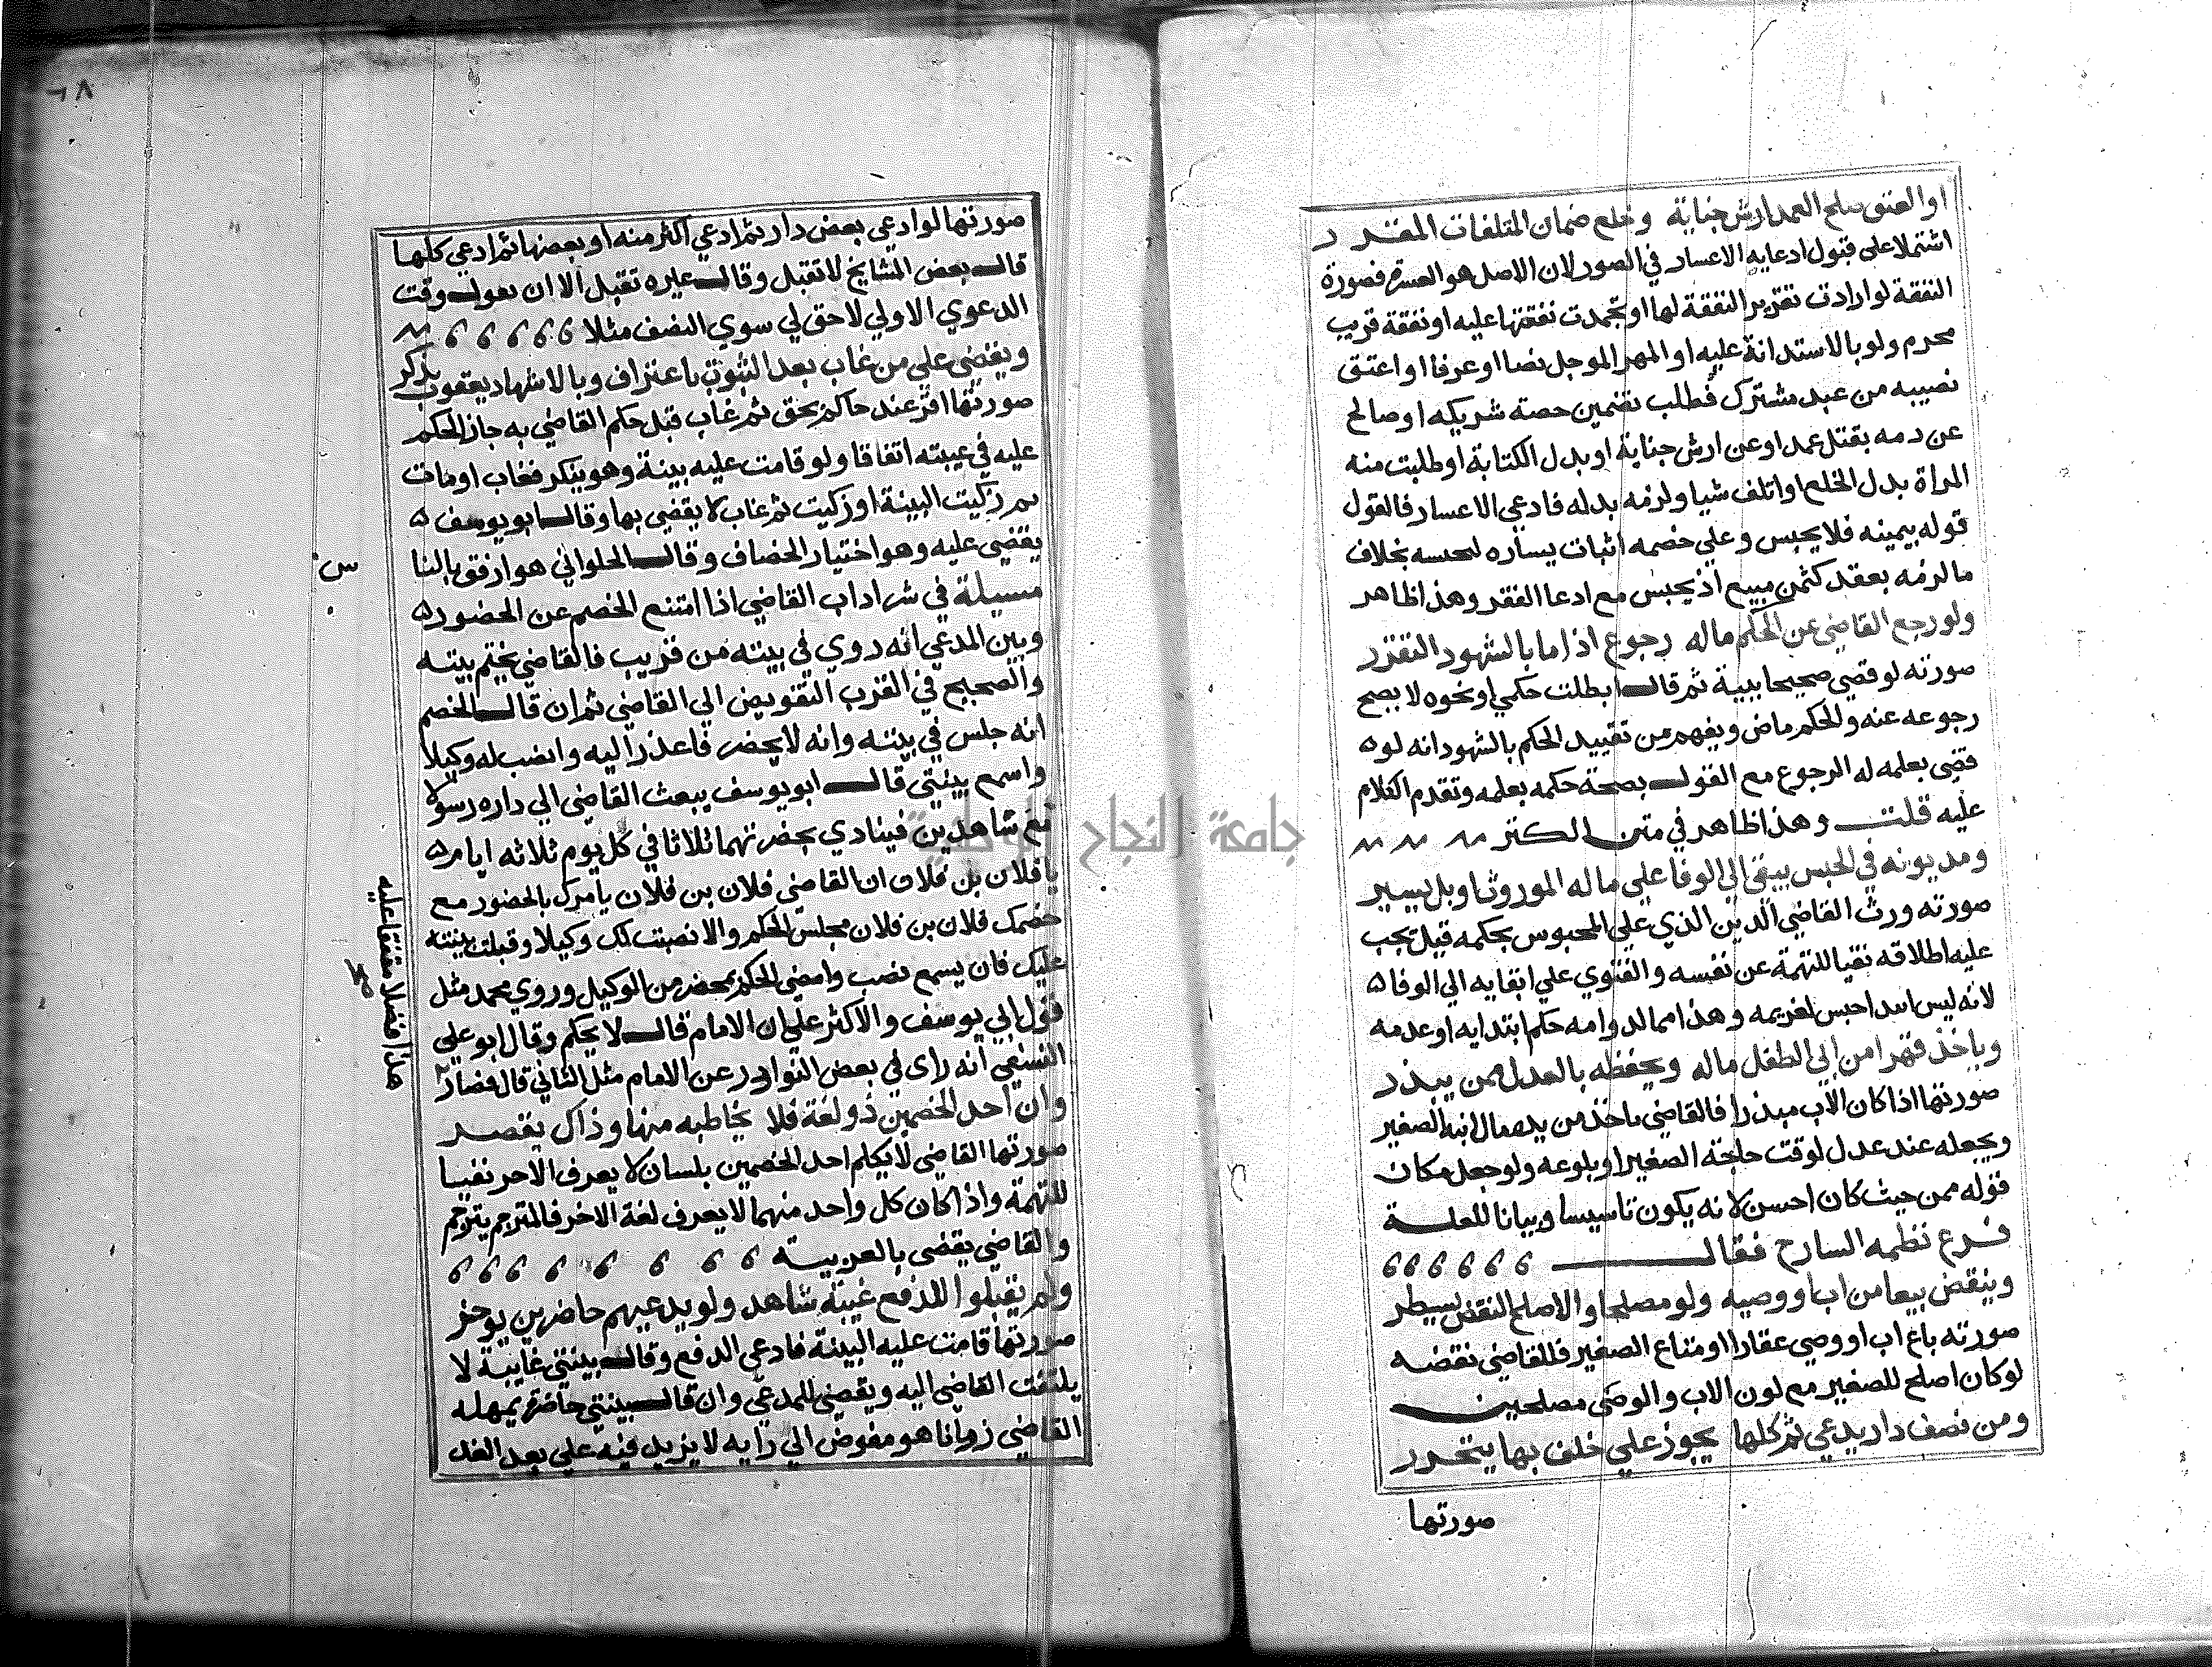 او العتق صلح العمد ارش جناية وخلع ضمان المتلفات المقرر
اشتملا على قبول ادعايه الاعسار في الصور لان الاصل هو العسرة فصورة
النفقة لو ارادت تقرير النفقة لها او تجمدت نفقتها عليه او نفقة قريب
محرم ولو بالاستدانة عليه او المهر الموجل نصا او عرفا او اعتق
نصيبه من عبد مشترك فطلب تضمين حصته شريكه او صالح
عن دمه بقتل عمد او عن ارش جناية او بدل الكتابة او طلبت منه
المراة بدل الخلع او اتلف شيا ولزمه بدله فادعي الاعسار فالقول
قوله بيمينه فلا يحبس وعلي خصمه اثبات يساره لحبسه بخلاف
ما لزمه بعقد كثمن مبيع اذ يحبس مع ادعا الفقر وهذا ظاهر
ولو رجع القاضي عن الحكم ماله رجوع اذا ما بالشهود التقرر
صورته لو قضي صحيحا ببينة ثم قال ابطلت حكمي او نحوه لا يصح
رجوعه عنه والحكم ماض ويفهم من تقييد الحكم بالشهود انه لو
قضي بعلمه له الرجوع مع القول بصحة حكمه بعلمه وتقدم الكلام
عليه قلت وهذا ظاهر في متن الكنز
ومديونه في الحبس يبقي الي الوفا علي ماله الموروث او بل يسير
صورته ورث القاضي الدين الذي علي المحبوس بحكمه قيل يجب
عليه اطلاقه نفيا للتهمة عن نفسه والفتوي علي ابقايه الي الوفا
لانه ليس ابتدا حبس لغريمه وهذا مما لدوامه حكم ابتدايه او عدمه
وياخذ قهرا من ابي الطفل ماله ويحفظه بالعدل ممن يبذر
صورتها اذا كان الاب مبذرا فالقاضي ياخذ من يده مال ابنه الصغير
ويجعله عند عدل لوقت حاجة الصغير او بلوغه ولو جعل مكان
قوله ممن حيث كان احسن لانه يكون تاسيسا وبيانا للعلة
فرع نظمه الشارح فقال
وينقض بيعا من اب او وصيه ولو مصلحا والاصلح النقض يسطر
صورته باع اب او وصي عقارا او متاع الصغير فللقاضي نقضه
لو كان اصلح للصغير مع لون الاب والوصي مصلحين
ومن نصف دار يدعي ثم كلها يجوز علي خلف بها يتحرر
صورتها
صورتها لو ادعى بعض دار ثم ادعي اكثر منه او بعضها ثم ادعي كلها
قال بعض المشايخ لا تقبل وقال غيره تقبل الا ان يقول وقت
الدعوي الاولي لا حق لي سوي النصف مثلا
ويقضى علي من غاب بعد الثبوت با عتراف وبالاشهاد يعقوب يذكر
صورتها اقر عند حاكم بحق ثم غاب قبل حكم القاضي به جاز الحكم
عليه في غيبته اتفاقا ولو قامت عليه بينة وهو ينكر فغاب او مات
ثم زكيت البينة او زكيت ثم غاب لا يقضي بها وقال ابو يوسف
يقضي عليه وهو اختيار الخصاف وقال الحلواني هو ارفق بالنا
س
مسيلة في شر اداب القاضي اذا امتنع الخصم عن الحضور
وبين المدعي انه روي في بيته من قريب فالقاضي يختم بيته
والصحيح في القرب التفويض الي القاضي ثم ان قال الخصم
انه جلس في بيته وانه لا يحضر فاعذر اليه وانصب له وكيلا
واسمع بينتي قال ابو يوسف يبعث القاضي الي داره رسولا
مع شاهدين فينادي بحضرتهما ثلاثا في كل يوم ثلاثه ايام
يا فلان بن فلان ان القاضي فلان بن فلان يامرك بالحضور مع
خصمك فلان بن فلان مجلس الحكم والا نصبت لك وكيلا وقبلت بينته
عليك فان يسمع نصب وامضي الحكم بمحضر من الوكيل وروي محمد مثل
قول ابي يوسف والاكثر علي ان الامام قال لا يحكم وقال ابو علي
النسفي انه راى في بعض النوادر عن الامام مثل الثاني قال فصار
هذا فضلا متفقا عليه
صح
وان احد الخصمين ذو لغة فلا يخاطبه منها وذاك يقصد
صورتها القاضي لا يكلم احد الخصمين بلسان لا يعرف الاخر نفيا
للتهمة واذا كان كل واحد منهما لا يعرف لغة الاخر فالمترجم يترجم
والقاضي يقضي بالعربية
ولم تقبلوا للدفع غيبة شاهد ولو يدعيهم حاضرين يوخر
صورتها قامت عليه البينة فادعي الدفع وقال بينتي غايبة لا
يلتفت القاضي اليه ويقضي للمدعي وان قال بينتي حاضرة يمهله
القاضي زمانا هو مفوض الي رايه لا يزيد فيه علي بعد الغد
٦٨
جامعة النجاح الوطنية